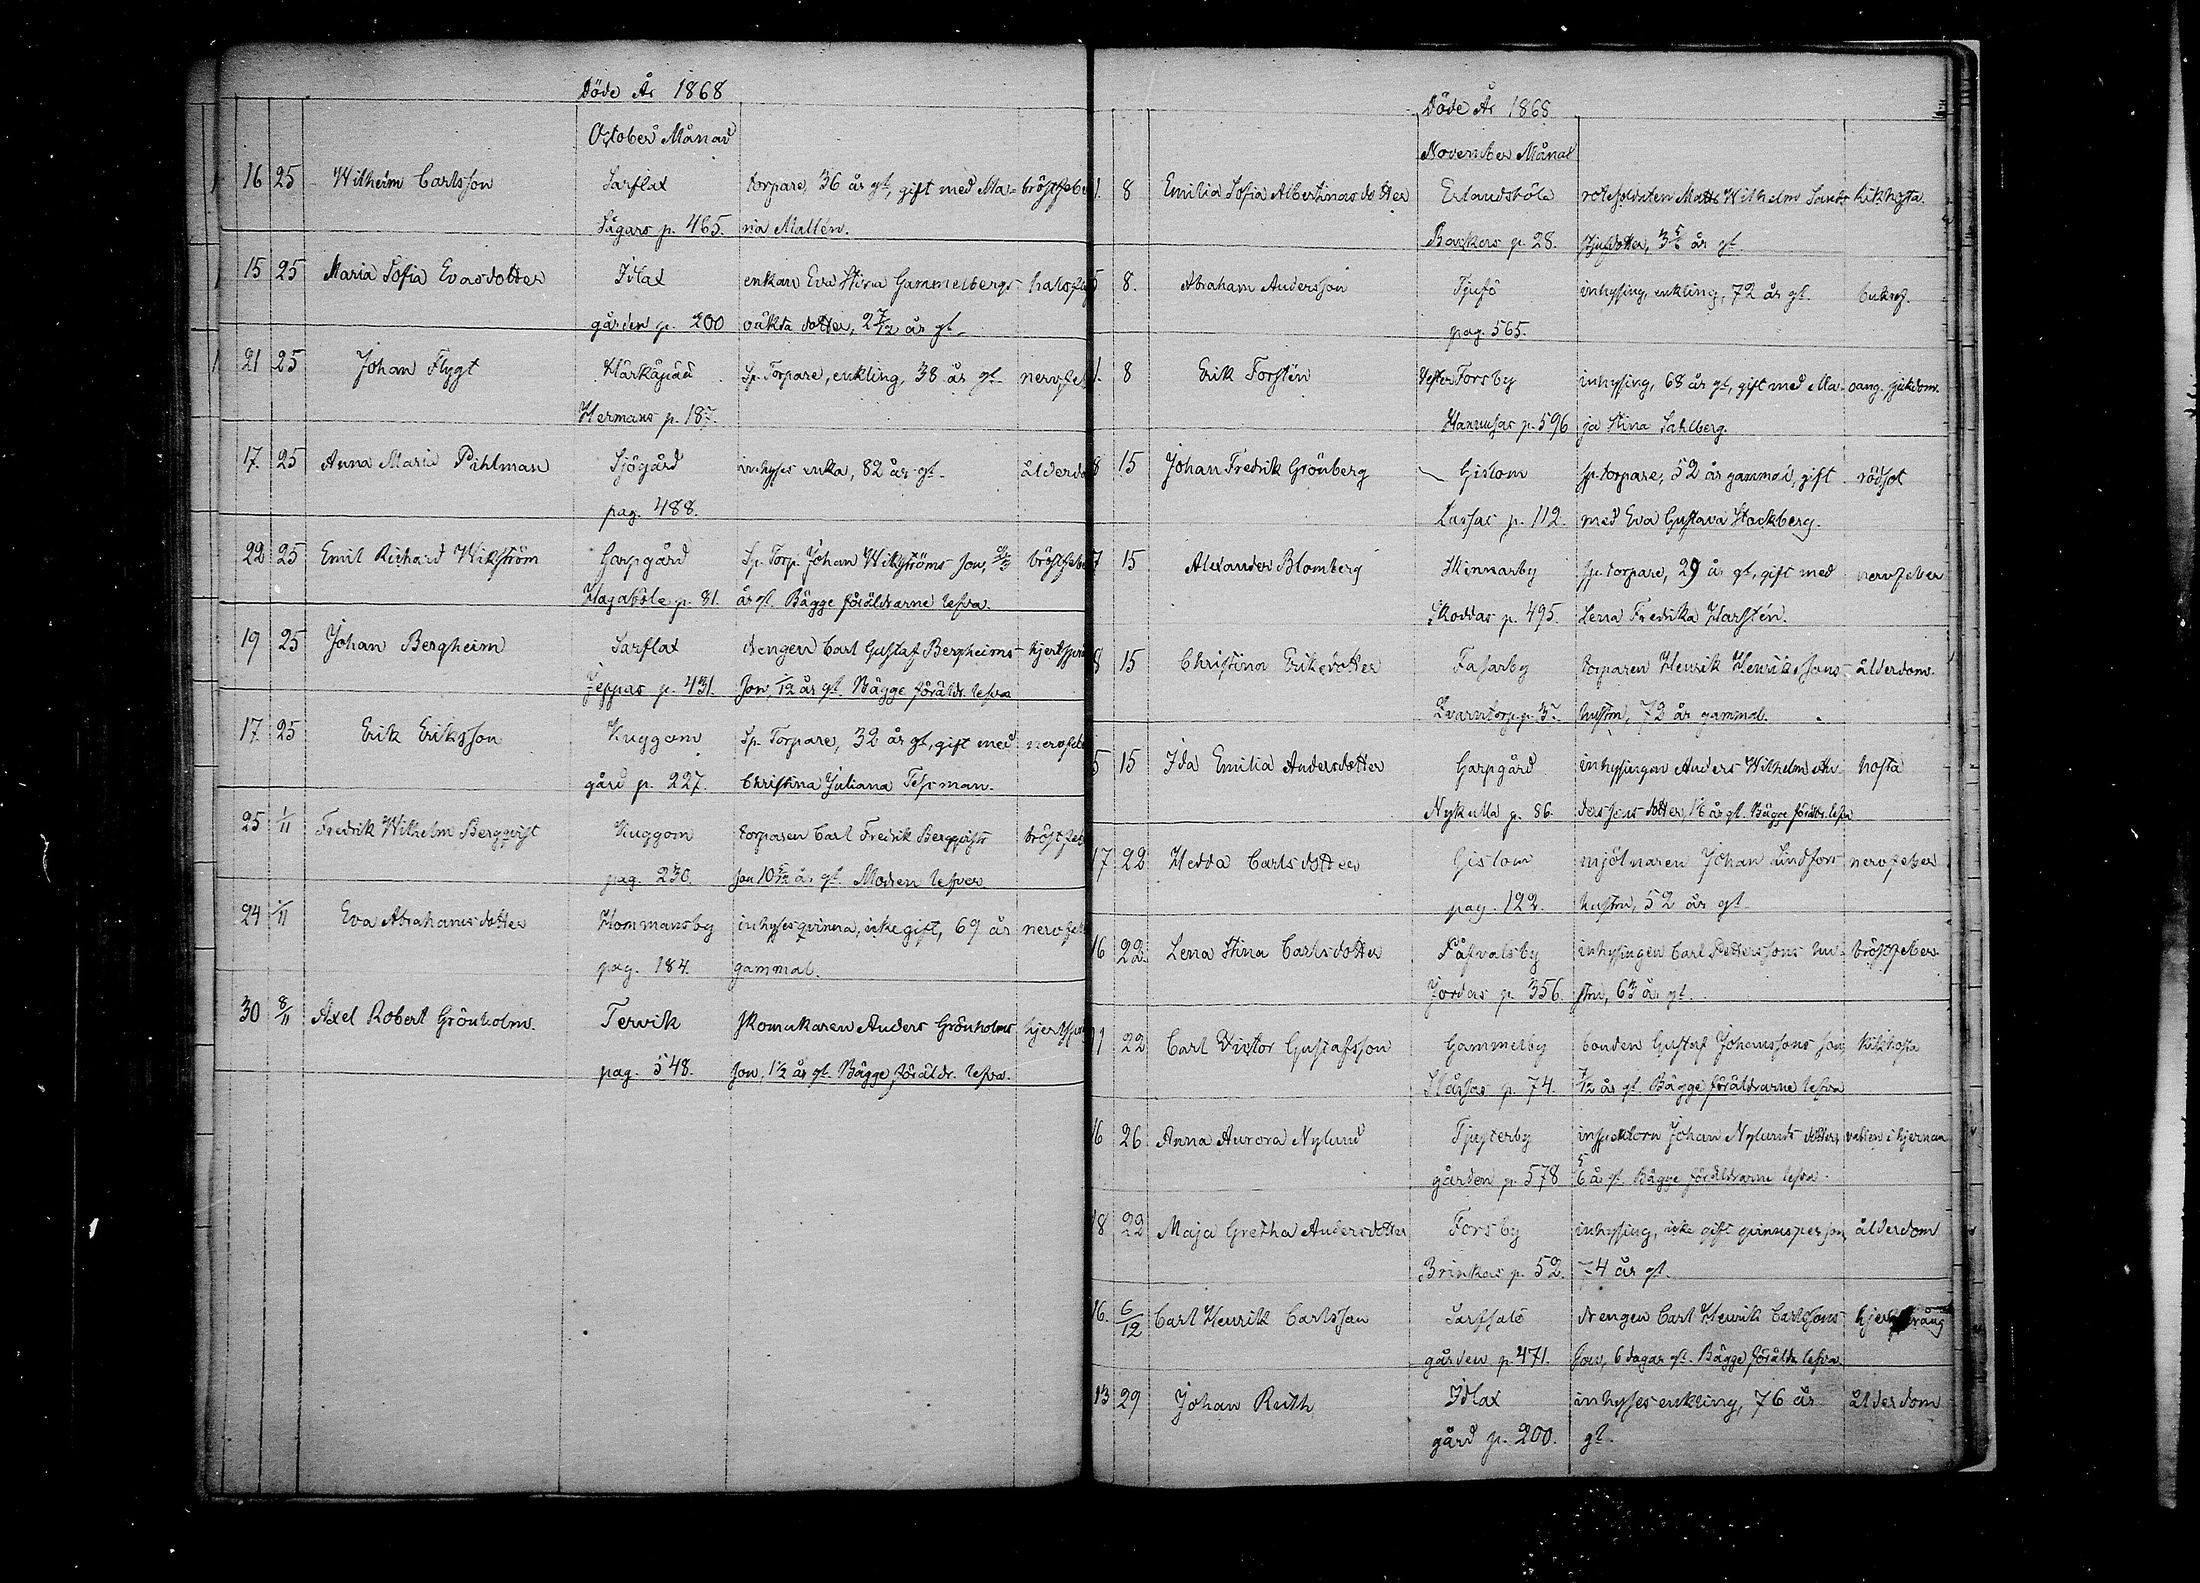 Döde År 1868
October Månad
16 25 Wilhelm Carlsson Sarflax torpare, 36 år gl, gift med Ma- bröstfeber
Sägars p. 465. ria Mallén.
15 25 Maria Sofia Evasdotter Idlax enkan Eva Stina Gammelbergs
gården p. 200 oäkta dotter, 2 7/12 år gl.
21 25 Johan Flygt Härkäpää Sp. Torpare, enkling, 38 år gl.
Hermans p. 187.
17. 25 Anna Maria Pihlman Sjögård inhyses enka, 82 år gl.
pag. 488.
22 25 Emil Richard Wikström Garpgård Sp. Torp. Johan Wikströms son,
Hagaböle p. 81. år gl. Bägge föräldrarne lefva.
19 25 Johan Bergheim Sarflax drengen Carl Gustaf Bergheims
Jeppas p. 431. son, 1/12 år gl. Bägge föräldr. lefva
17 25 Erik Eriksson Kuggom Sp. Torpare, 32 år gl, gift med
gård p. 227. Christina Juliana Tessman.
25 1/11 Fredrik Wilhelm Bergqvist Kuggom torparen Carl Fredrik Bergqvists
pag. 230. son 10 5/12 år gl. Modren lefver
24 1/11 Eva Abrahamsdotter Hommansby inhyses qvinna, icke gift, 69 år
pag. 184. gammal.
30 8/11 Axel Robert Grönholm. Tervik skomakaren Anders Grönholms
pag. 548. son, 1 1/2 år gl. Bägge föräldr. lefva.
Döde År 1868
November Månad
1. 8 Emilia Sofia Albertinasdotter Erlandsböle rotesoldaten Matts Wilhelm Sands kikhosta.
Backers p. 28. stjufdotter, 3 5/6 år gl.
5 8. Abraham Andersson Tjufö inhysing, enkling, 72 år gl.
pag. 565.
1. 8 Erik Forstén Vester Forsby inhysing, 68 år gl, gift med Ma- oang. sjukdom.
Hannusas p. 596 ja Stina Sahlberg.
8 15 Johan Fredrik Grönberg Gislom sp. torpare, 52 år gammal, gift rödsot
Lassas p. 112. med Eva Gustava Stockberg.
7 15 Alexander Blomberg Skinnarby sp. torpare, 29 år gl, gift med nervfeber
Skoddas p. 495. Lena Fredrika Karstén.
8 15 Christina Eriksdotter Fasarby torparen Henrik Henrikssons ålderdom.
Qvarntorp p. 37 hustru, 72 år gammal.
5 15 Ida Emilia Andersdotter Garpgård inhysingen Anders Wilhelm An- hosta
Nykulla p. 86. derssons dotter, 1/6 år gl. Bägge föräldr. lefva
17 22 Hedda Carlsdotter Gislom mjölnaren Johan Lindfors nervfeber
pag. 122. hustru, 52 år gl.
16 22. Lena Stina Carlsdotter Påfvalsby inhysingen Carl Petterssons hu- bröstfeber.
Jordas p. 356. stru, 63 år gl.
11 22 Carl Victor Gustafsson Gammelby bonden Gustaf Johanssons son, kikhosta
p. 74. 7/12 år gl. Bägge föräldrarne lefva
16 26 Anna Aurora Nylund Tjusterby inspektorn Johan Nylunds dotter, vatten i hjernan
gården p. 578 5/6 år gl. Bägge föräldrarne lefva.
18 22 Maja Gretha Andersdotter Forsby inhysing, icke gift qvinnsperson, ålderdom
Brinkas p. 52. 74 år gl.
16. 6/12 Carl Henrik Carlsson Sarfsalö drengen Carl Henrik Carlssons
gården p. 471. son, 6 dagar gl. Bägge föräldr lefva.
13 29 Johan Ruth Idlax inhyses enkling, 76 år ålderdom
gård p. 200. gl.